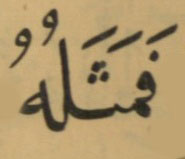 فَمَثَلُهُ